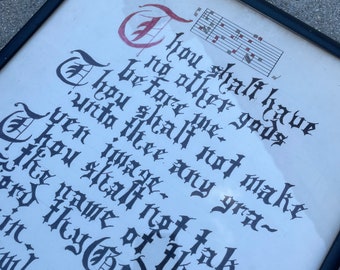 Thou shalt have
no other gods
before me.
Thou shalt not make
unto thee any gra-
ven image.
Thou shalt not tak
the name of th
ord thy God
in.